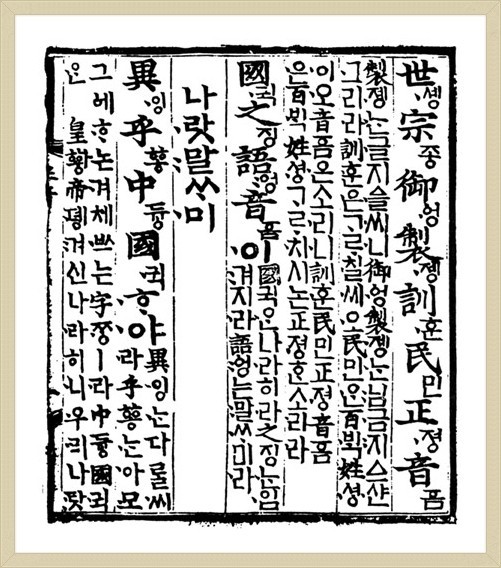 世솅宗조ᇰ御ᅌᅥᆼ製졩訓훈民민正져ᇰ音ᅙᅳᆷ
製졩ᄂᆞᆫ글지ᅀᅳᆯ씨니御ᅌᅥᆼ製졩ᄂᆞᆫ님금지ᅀᅳ샨
그리라訓훈은ᄀᆞᄅᆞ칠씨오民민ᄋᆞᆫ百ᄇᆡᆨ姓셔ᇰ
이오音ᅙᅳᆷ은소리니訓훈民민正져ᇰ音ᅙᅳᆷ
은百ᄇᆡᆨ姓셔ᇰᄀᆞᄅᆞ치시논正져ᇰᄒᆞᆫ소리라
國귁之징語ᅌᅥᆼ音ᅙᅳᆷ이國귁ᄋᆞᆫ나라히라之징ᄂᆞᆫ입
겨지라語ᅌᅥᆼ는말ᄊᆞ미라
나랏말ᄊᆞ미
異잉乎ᅘᅩᆼ中듀ᇰ國귁ᄒᆞ야異잉ᄂᆞᆫ다ᄅᆞᆯ씨
라乎ᅘᅩᆼᄂᆞᆫ아모
그ᅌᅦᄒᆞ논겨체ᄡᅳ는字ᄍᆞᆼㅣ라中듀ᇰ國귁
ᄋᆞᆫ 皇ᅘᅪᇰ帝뎽겨신나라히니우리나랏